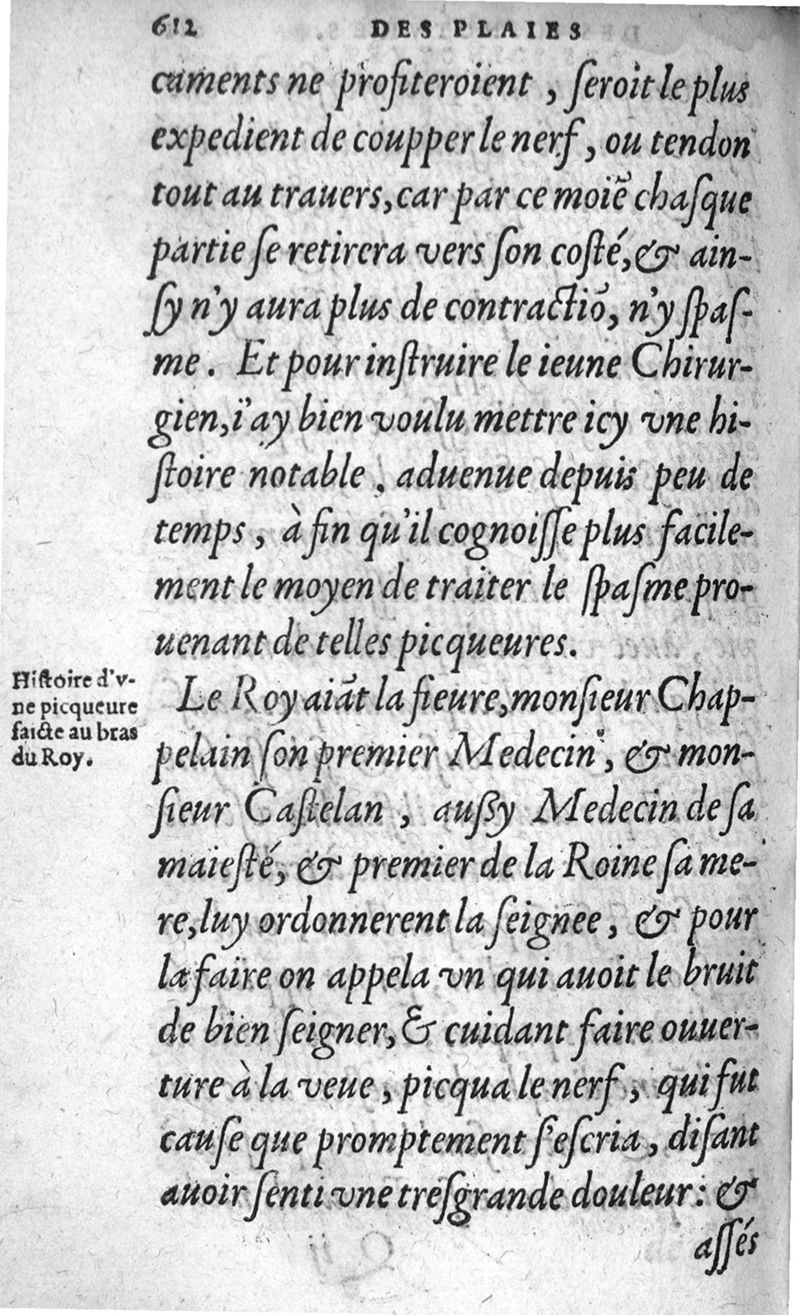 612 DES PLAIES
caments ne profiteroient , ſeroit le plus
expedient de coupper le nerf, ou tendon
tout au trauers, car par ce moiẽ chaſque
partie ſe retirera vers ſon coſté, & ain-
ſy n'y aura plus de contractiõ, n'y ſpaſ-
me. Et pour inſtruire le ieune Chirur-
gien, i'ay bien voulu mettre icy vne hi-
ſtoire notable , aduenue depuis peu de
temps , à fin qu'il cognoiſſe plus facile-
ment le moyen de traiter le ſpaſme pro-
uenant de telles picqueures.
Hiſtoire d'v-
ne picqueure
faicte au bras
du Roy.
Le Roy aiãt la fieure, monſieur Chap-
pelain ſon premier Medecin , & mon-
ſieur Caſtelan , auſſy Medecin de ſa
maieſté, & premier de la Roine ſa me-
re, luy ordonnerent la ſeignee , & pour
la faire on appela vn qui auoit le bruit
de bien ſeigner, & cuidant faire ouuer-
ture à la veue , picqua le nerf , qui fut
cauſe que promptement ſ'eſcria , diſant
auoir ſenti vne treſgrande douleur : &
aſſés